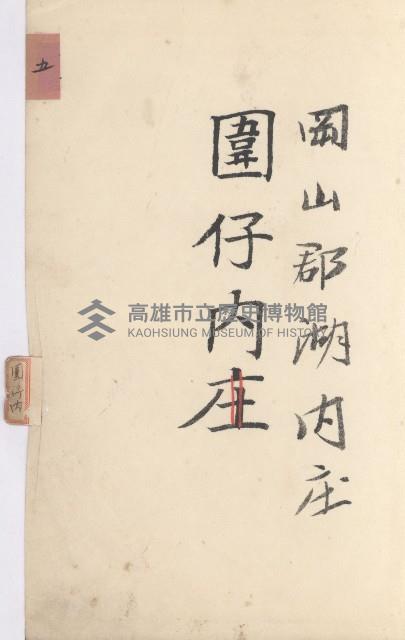 岡山郡湖内庄
圍仔內庄
五
圍仔内
高雄市立歷史博物館
KAOHSIUNG MUSEUM OF HISTORY